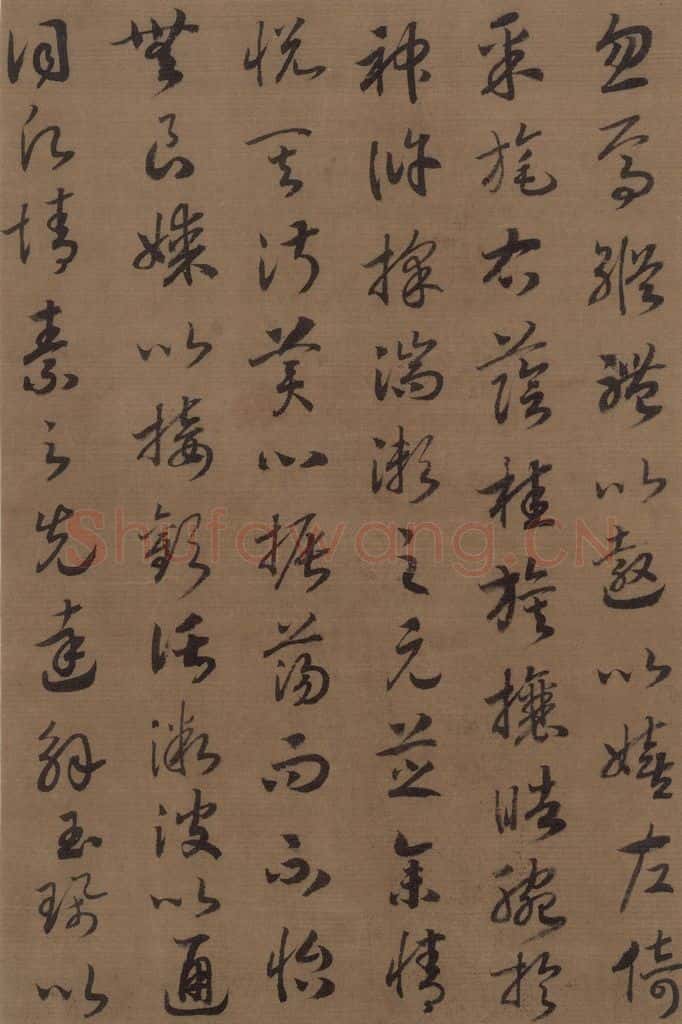 忽焉縱體以遨以嬉左倚
采旄右蔭桂旗攘皓腕於
神滸採湍瀨之元芝余情
悅其淑美心振蕩而不怡
無良媒以接歡託微波以通
詞願情素之先達解玉珮以
Shufawang.CN